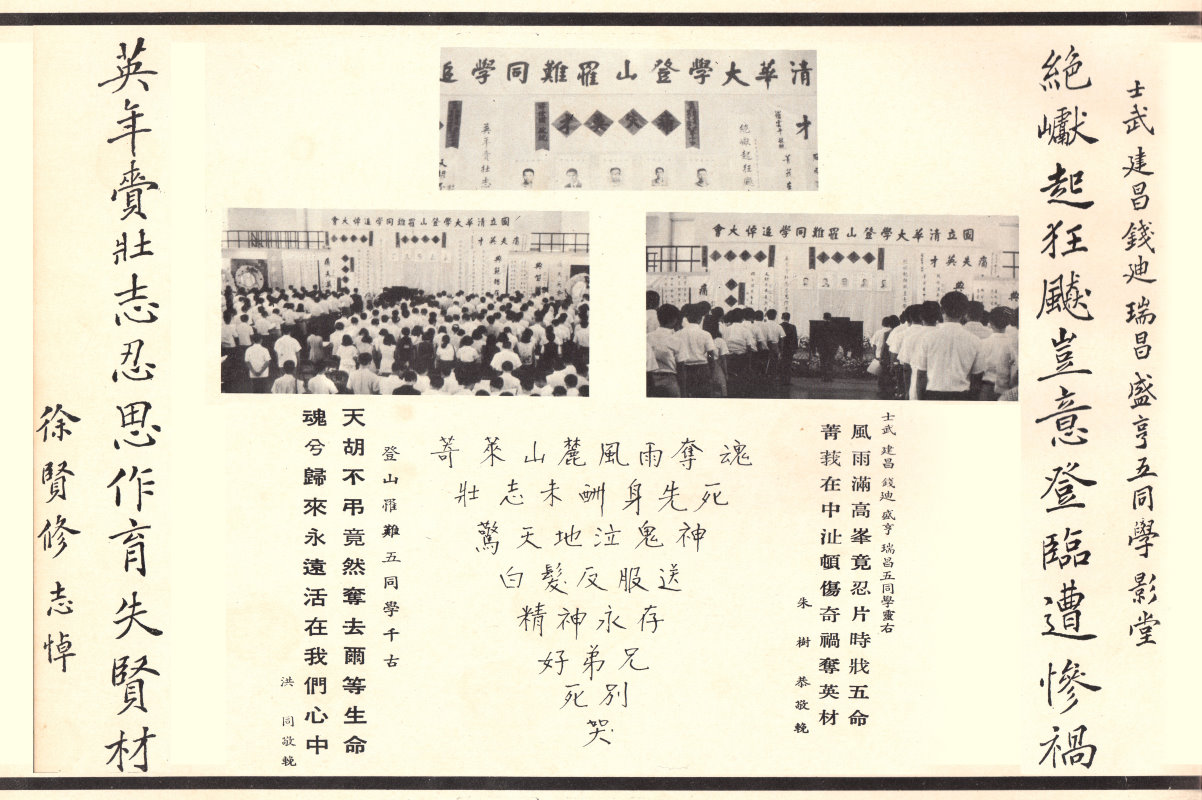 士武 建昌 錢迪 瑞昌 盛亨 五同學 影堂
絕巘起狂飈豈意登臨遭慘禍
英年賫壯志忍思作育失賢材
徐賢修 志悼
清華大學登山罹難同學追
痛失英才
才
絕巘起狂飈
英年賫壯志
國立清華大學登山罹難同學追悼大會
痛失英才
國立清華大學登山罹難同學追悼大會
痛失英才
士武 建昌 錢迪 盛亨 瑞昌五同學靈右
風雨滿高峯竟忍片時戕五命
菁莪在中沚頓傷奇禍奪英材
朱樹恭敬輓
菁萊山麓風雨奪魂
壯志未酬身先死
驚天地泣鬼神
白髮反服送
精神永存
好弟兄
死別
哭
登山罹難五同學千古
天胡不弔竟然奪去爾等生命
魂兮歸來永遠活在我們心中
洪同敬輓